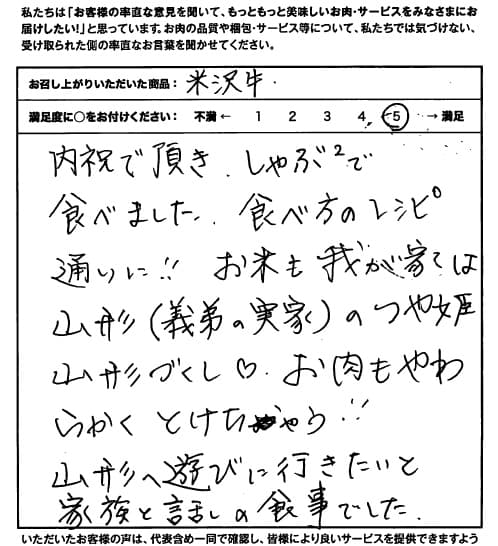 私たちは「お客様の率直な意見を聞いて、もっともっと美味しいお肉・サービスをみなさまにお
届けしたい!」と思っています。お肉の品質や梱包・サービス等について、私たちでは気づけない、
受け取られた側の率直なお言葉を聞かせてください。
お召し上がりいただいた商品: 米沢牛.
満足度に○をお付けください: 不満 ← 1 2 3 4 5 → 満足
内祝で頂き、しゃぶ²で
食べました. 食べ方のレシピ
通りに!! お米も我が家では
山形(義弟の実家)のつや姫
山形づくし♡. お肉もやわ
らかく とけちゃう!!
山形へ遊びに行きたいと
家族と話しの食事でした.
いただいたお客様の声は、代表含め一同で確認し、皆様により良いサービスを提供できますよう